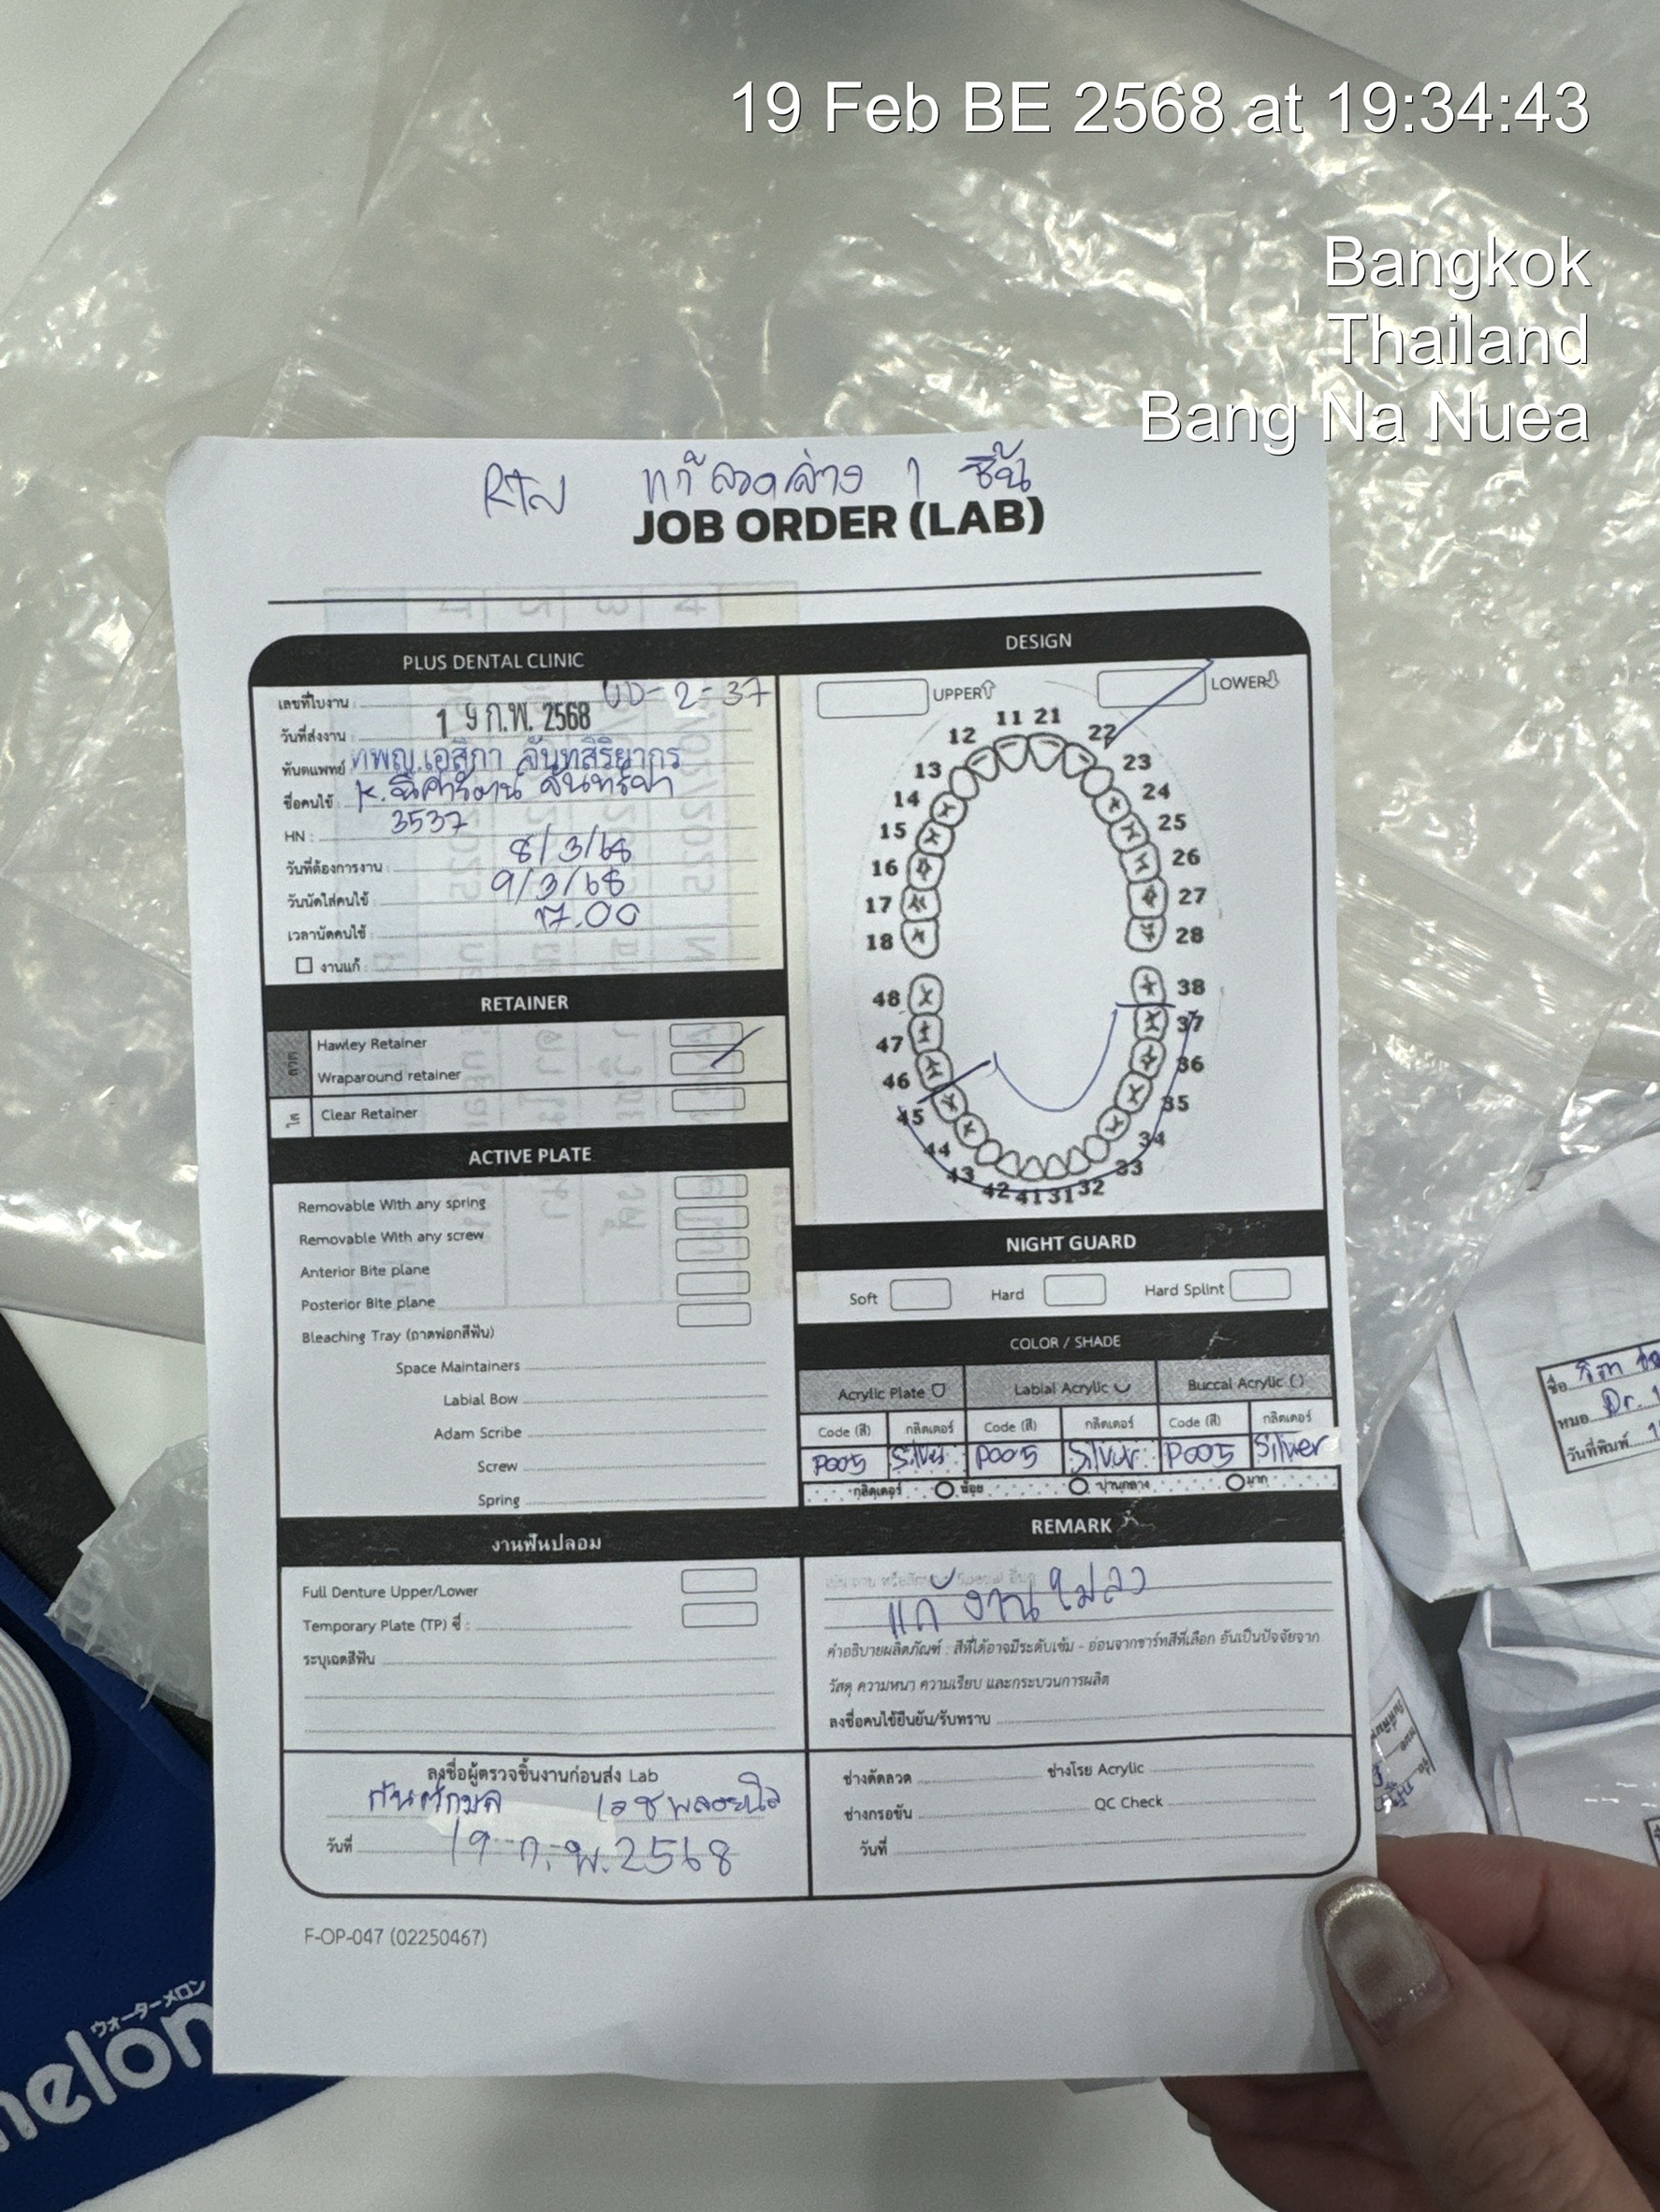 19 Feb BE 2568 at 19:34:43
Bangkok
Thailand
Bang Na Nuea
RTN แก้ลวดล่าง 1 ชิ้น
JOB ORDER (LAB)
PLUS DENTAL CLINIC
เลขที่ใบงาน : 00-2-37
วันที่ส่งงาน : 19 ก.พ. 2568
ทันตแพทย์ ทพญ.เอสิกา จันทสิริยากร
ชื่อคนไข้ : K.
HN : 3537
วันที่ต้องการงาน : 8/3/68
วันนัดใส่คนไข้ : 9/3/68
เวลานัดคนไข้ : 17.00
งานแก้ :
RETAINER
ลวด
Hawley Retainer
Wraparound retainer
ใส
Clear Retainer
ACTIVE PLATE
Removable With any spring
Removable With any screw
Anterior Bite plane
Posterior Bite plane
Bleaching Tray (ถาดฟอกสีฟัน)
Space Maintainers
Labial Bow
Adam Scribe
Screw
Spring
งานฟันปลอม
Full Denture Upper/Lower
Temporary Plate (TP) ซี่ :
ระบุเฉดสีฟัน
ลงชื่อผู้ตรวจชิ้นงานก่อนส่ง Lab
วันที่ 19 ก.พ. 2568
DESIGN
UPPER LOWER
11 21
12 22
13 23
14 24
15 25
16 26
17 27
18 28
48 38
47 37
46 36
45 35
44 34
43 33
42 41 31 32
NIGHT GUARD
Soft Hard Hard Splint
COLOR / SHADE
Acrylic Plate Labial Acrylic Buccal Acrylic ( )
Code (สี) กลิตเตอร์ Code (สี) กลิตเตอร์ Code (สี) กลิตเตอร์
P005 Silver P005 Silver P005 Silver
กลิตเตอร์ น้อย ปานกลาง มาก
REMARK
แก้ งานไม่ลง
คำอธิบายผลิตภัณฑ์ : สีที่ได้อาจมีระดับเข้ม - อ่อนจากชาร์ทสีที่เลือก อันเป็นปัจจัยจาก
วัสดุ ความหนา ความเรียบ และกระบวนการผลิต
ลงชื่อคนไข้ยืนยัน/รับทราบ
ช่างดัดลวด ช่างโรย Acrylic
ช่างกรอขัด QC Check
วันที่
F-OP-047 (02250467)
ウォーターメロン
melon
ชื่อ
หมอ Dr.
วันที่พิมพ์